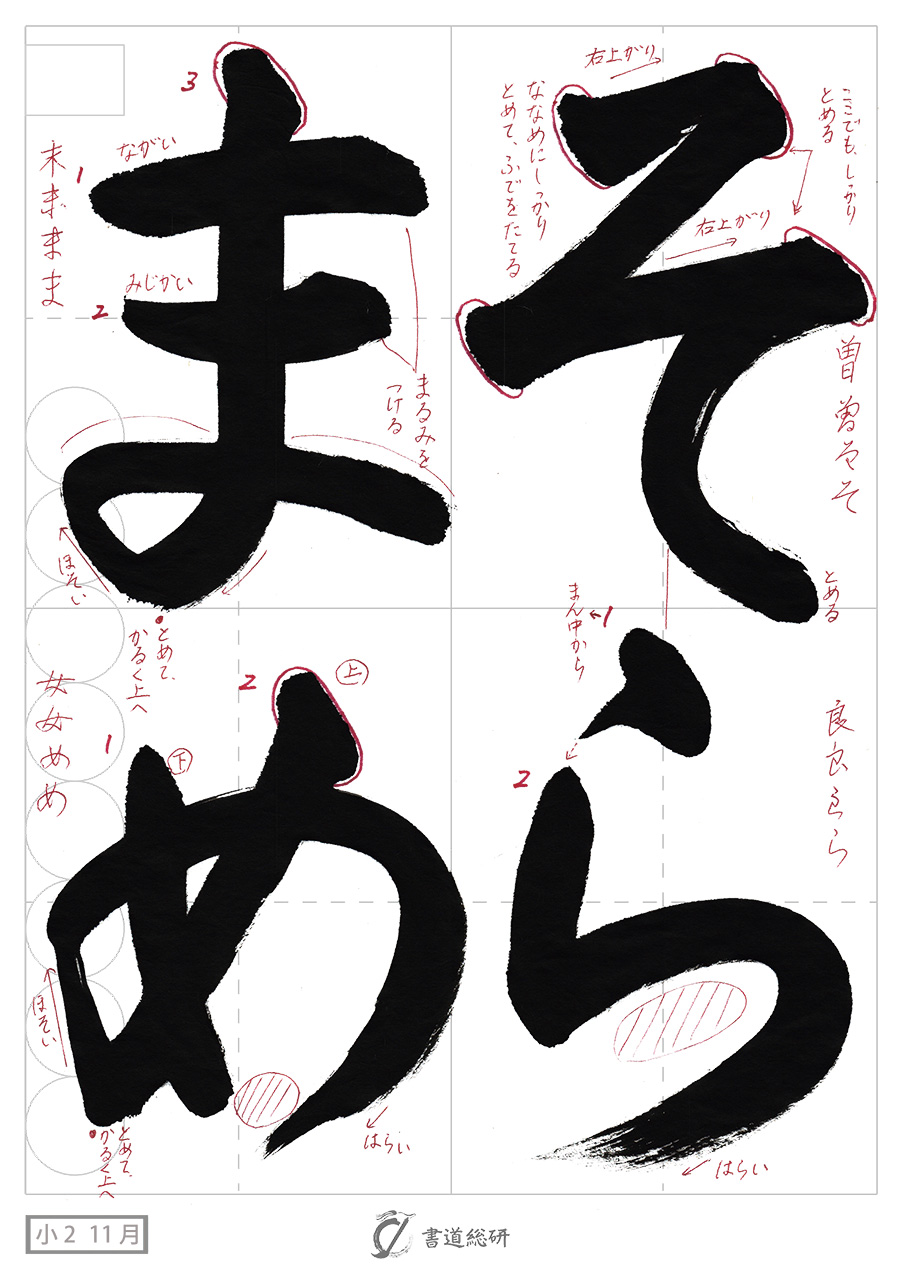 そらまめ
右上がり
ここでも、しっかり
とめる
ななめにしっかり
とめて、ふでをたてる
右上がり
曽曽そそ
とめる
1
まん中から
2
良良らら
はらい
3
ながい
1
末まままま
みじかい
2
まるみを
つける
ほそい
とめて、
かるく上へ
2
上
1
下
女女めめ
ほそい
とめて、
かるく上へ
はらい
小2 11月
書道総研